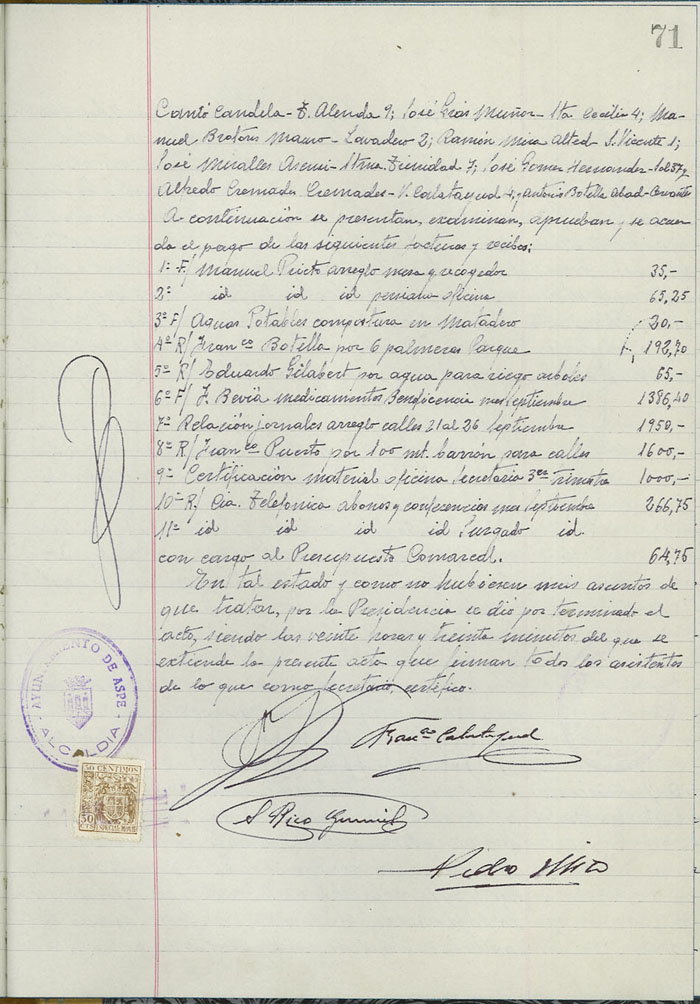 71
Cantó Candela - T. Alenda 9; José Grás Muñoz - Sta. Cecilia 4; Ma-
nuel Brotons Mauro - Lavadero 2; Ramón Mira Alted - S. Vicente 1;
José Miralles Asensi - Stma. Trinidad 7; José Gomez Hernandez - Sol 37 y
Alfredo Cremades Cremades - V. Calatayud 4, y Antonio Botella Abad - Cervantes
A continuación se presentan, examinan, aprueban y se acuer-
da el pago de las siguientes facturas y recibos:
1ª F/ Manuel Prieto arreglo mesa y recogedor 35,-
2ª id id id persiana oficina 65,25
3ª F/ Aguas Potables compostura en Matadero 20,-
4ª R/ Franco Botella por 6 palmeras Parque 192,70
5ª R/ Eduardo Gilabert por agua para riego arboles 65,-
6ª F/ J. Beviá medicamentos Beneficencia mes septiembre 1386,40
7ª Relación jornales arreglo calles 21 al 26 Septiembre 1950,-
8ª R/ Franco Puerto por 100 mt. barrón para calles 1600,-
9ª Certificación material oficina Secretaria 3er trimestre 1000,-
10ª R/ Cia. Telefonica abonos y conferencias mes Septiembre 266,75
11ª id id id id Juzgado id.
con cargo al Presupuesto Comarcal. 64,75
En tal estado y como no hubiesen más asuntos de
que tratar, por la Presidencia se dió por terminado el
acto, siendo las veinte horas y treinta minutos del que se
extiende la presente acta que firman todos los asistentes
de lo que como Secretario, certifico.
AYUNTAMIENTO DE ASPE
ALCALDIA
Franco Calatayud
50 CENTIMOS
50 CTS
S. Rico
Pedro Mira